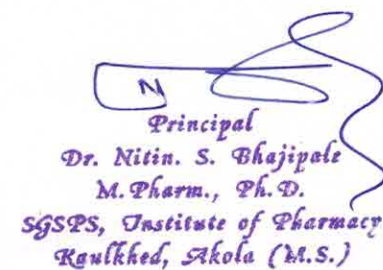 Principal
Dr. Nitin. S. Bhajipale
M. Pharm., Ph. D.
SGSPS, Institute of Pharmacy
Kaulkhed, Akola (M.S.)